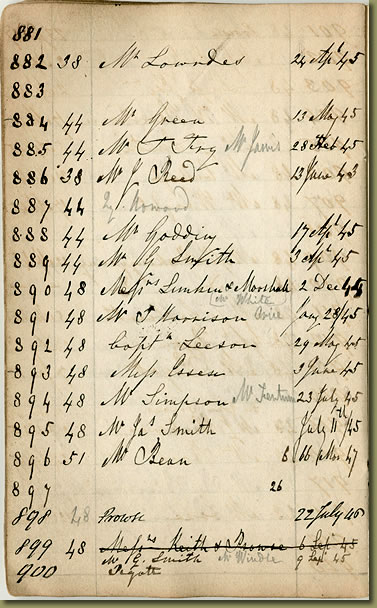 881
882 38 Mr Lowndes 24 Apl 45
883
884 44 Mr Green 13 May 45
885 44 Mr T Fry Mr Jarvis 28 Feb 45
886 38 Mr J. Reed 13 June 43
887 44 Norwood
888 44 Mr Godding 17 Apl 45
889 44 Mr G Smith 3 Apl 45
890 48 Messrs Simkin & Marshall 2 Dec 44
Mr White
891 48 Mr T Morrison Jany 28/45
892 48 Captn Leeson 29 May 45
893 48 Miss Essex 3 June 45
894 48 Mr Simpson Mr 23 July 45
895 48 Mr Jas Smith July 11th/45
896 51 Mr Bean 6 Mar 47
897 26
898 48 Prowse 22 July 45
899 48 Messrs Keith & Prowse 6 Sep 45
Mr G. Smith Mr Windle 9 Sep 45
900 Pigott